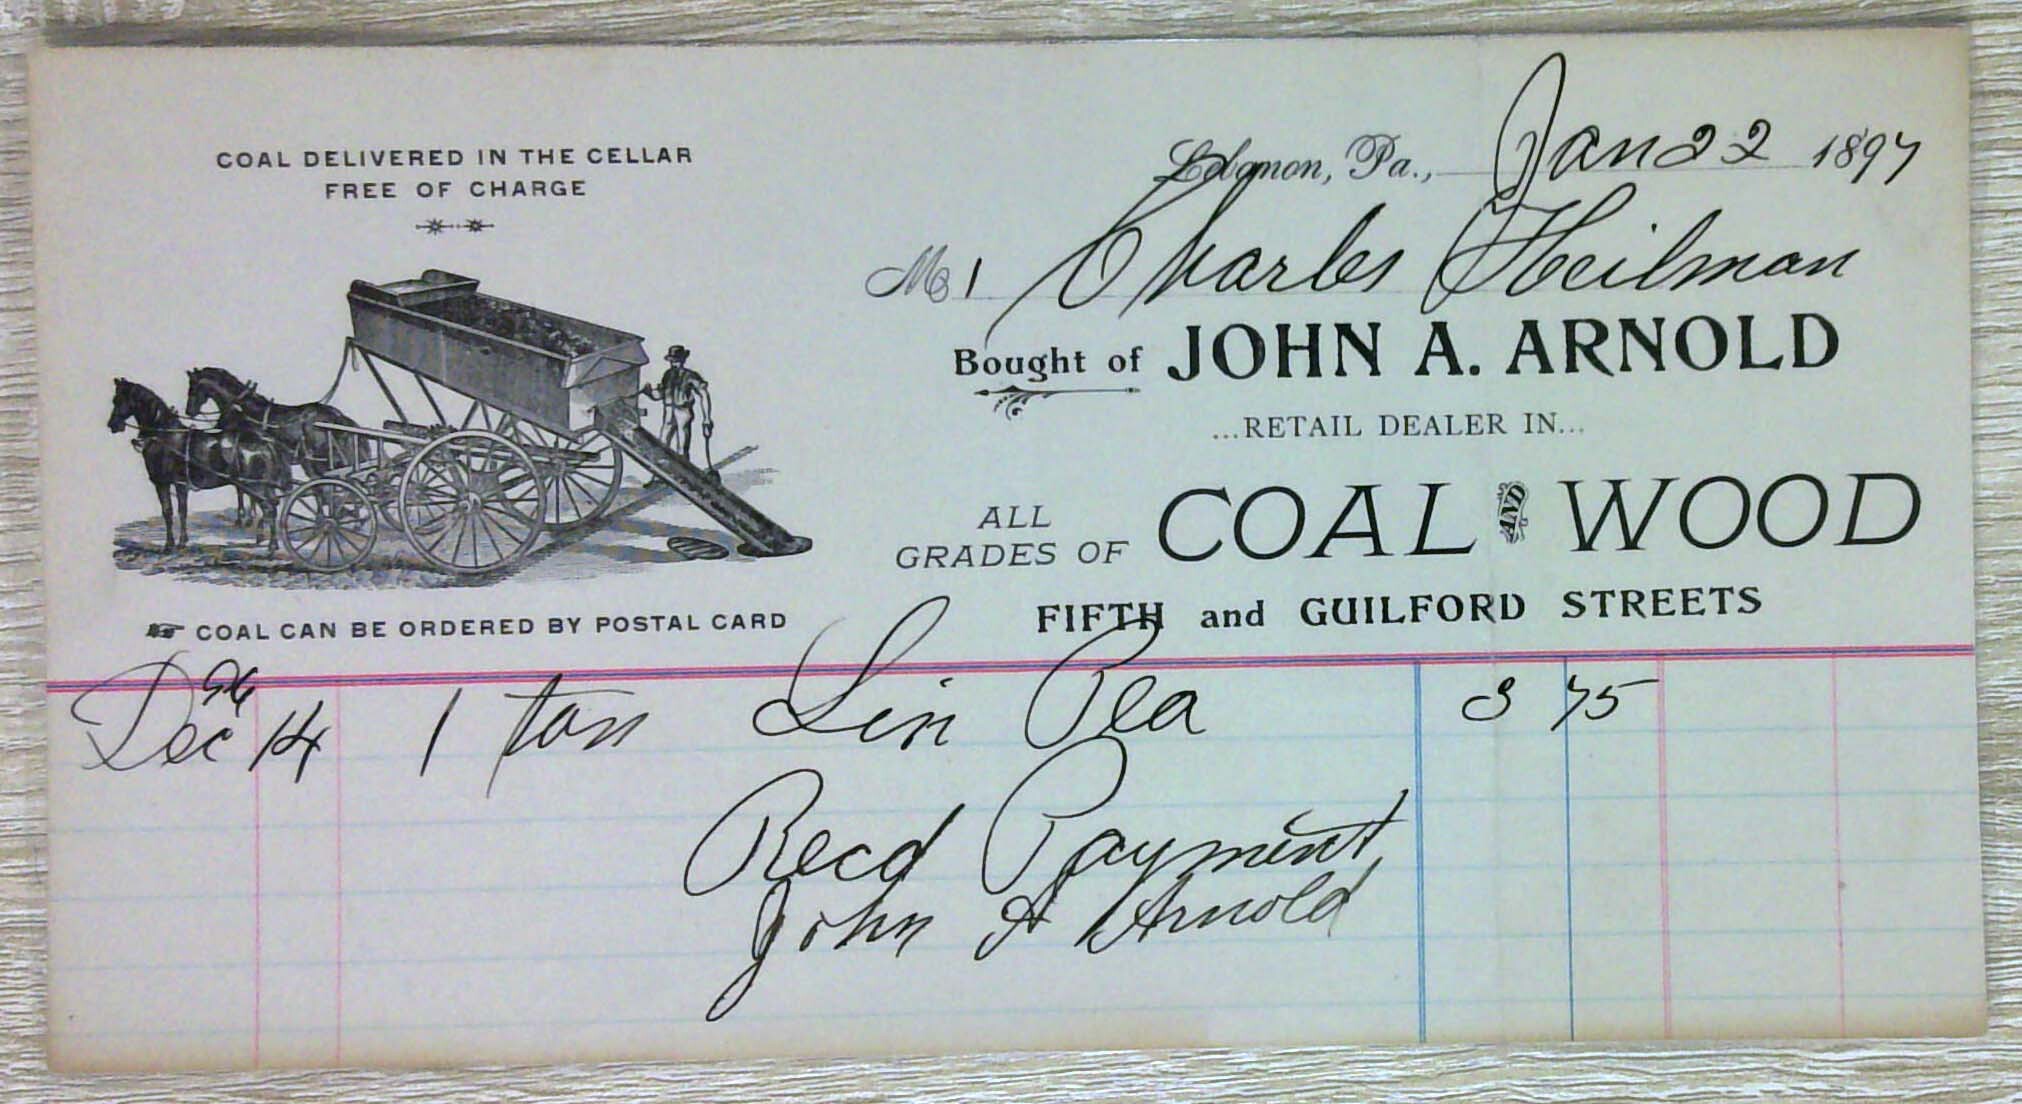 COAL DELIVERED IN THE CELLAR
FREE OF CHARGE
Lebanon, Pa., Jan 22 1897
M Charles Heilman
Bought of JOHN A. ARNOLD
...RETAIL DEALER IN...
ALL GRADES OF COAL AND WOOD
FIFTH and GUILFORD STREETS
COAL CAN BE ORDERED BY POSTAL CARD
96
Dec 14 1 ton Lin Pea 3 75
Recd Payment
John A Arnold